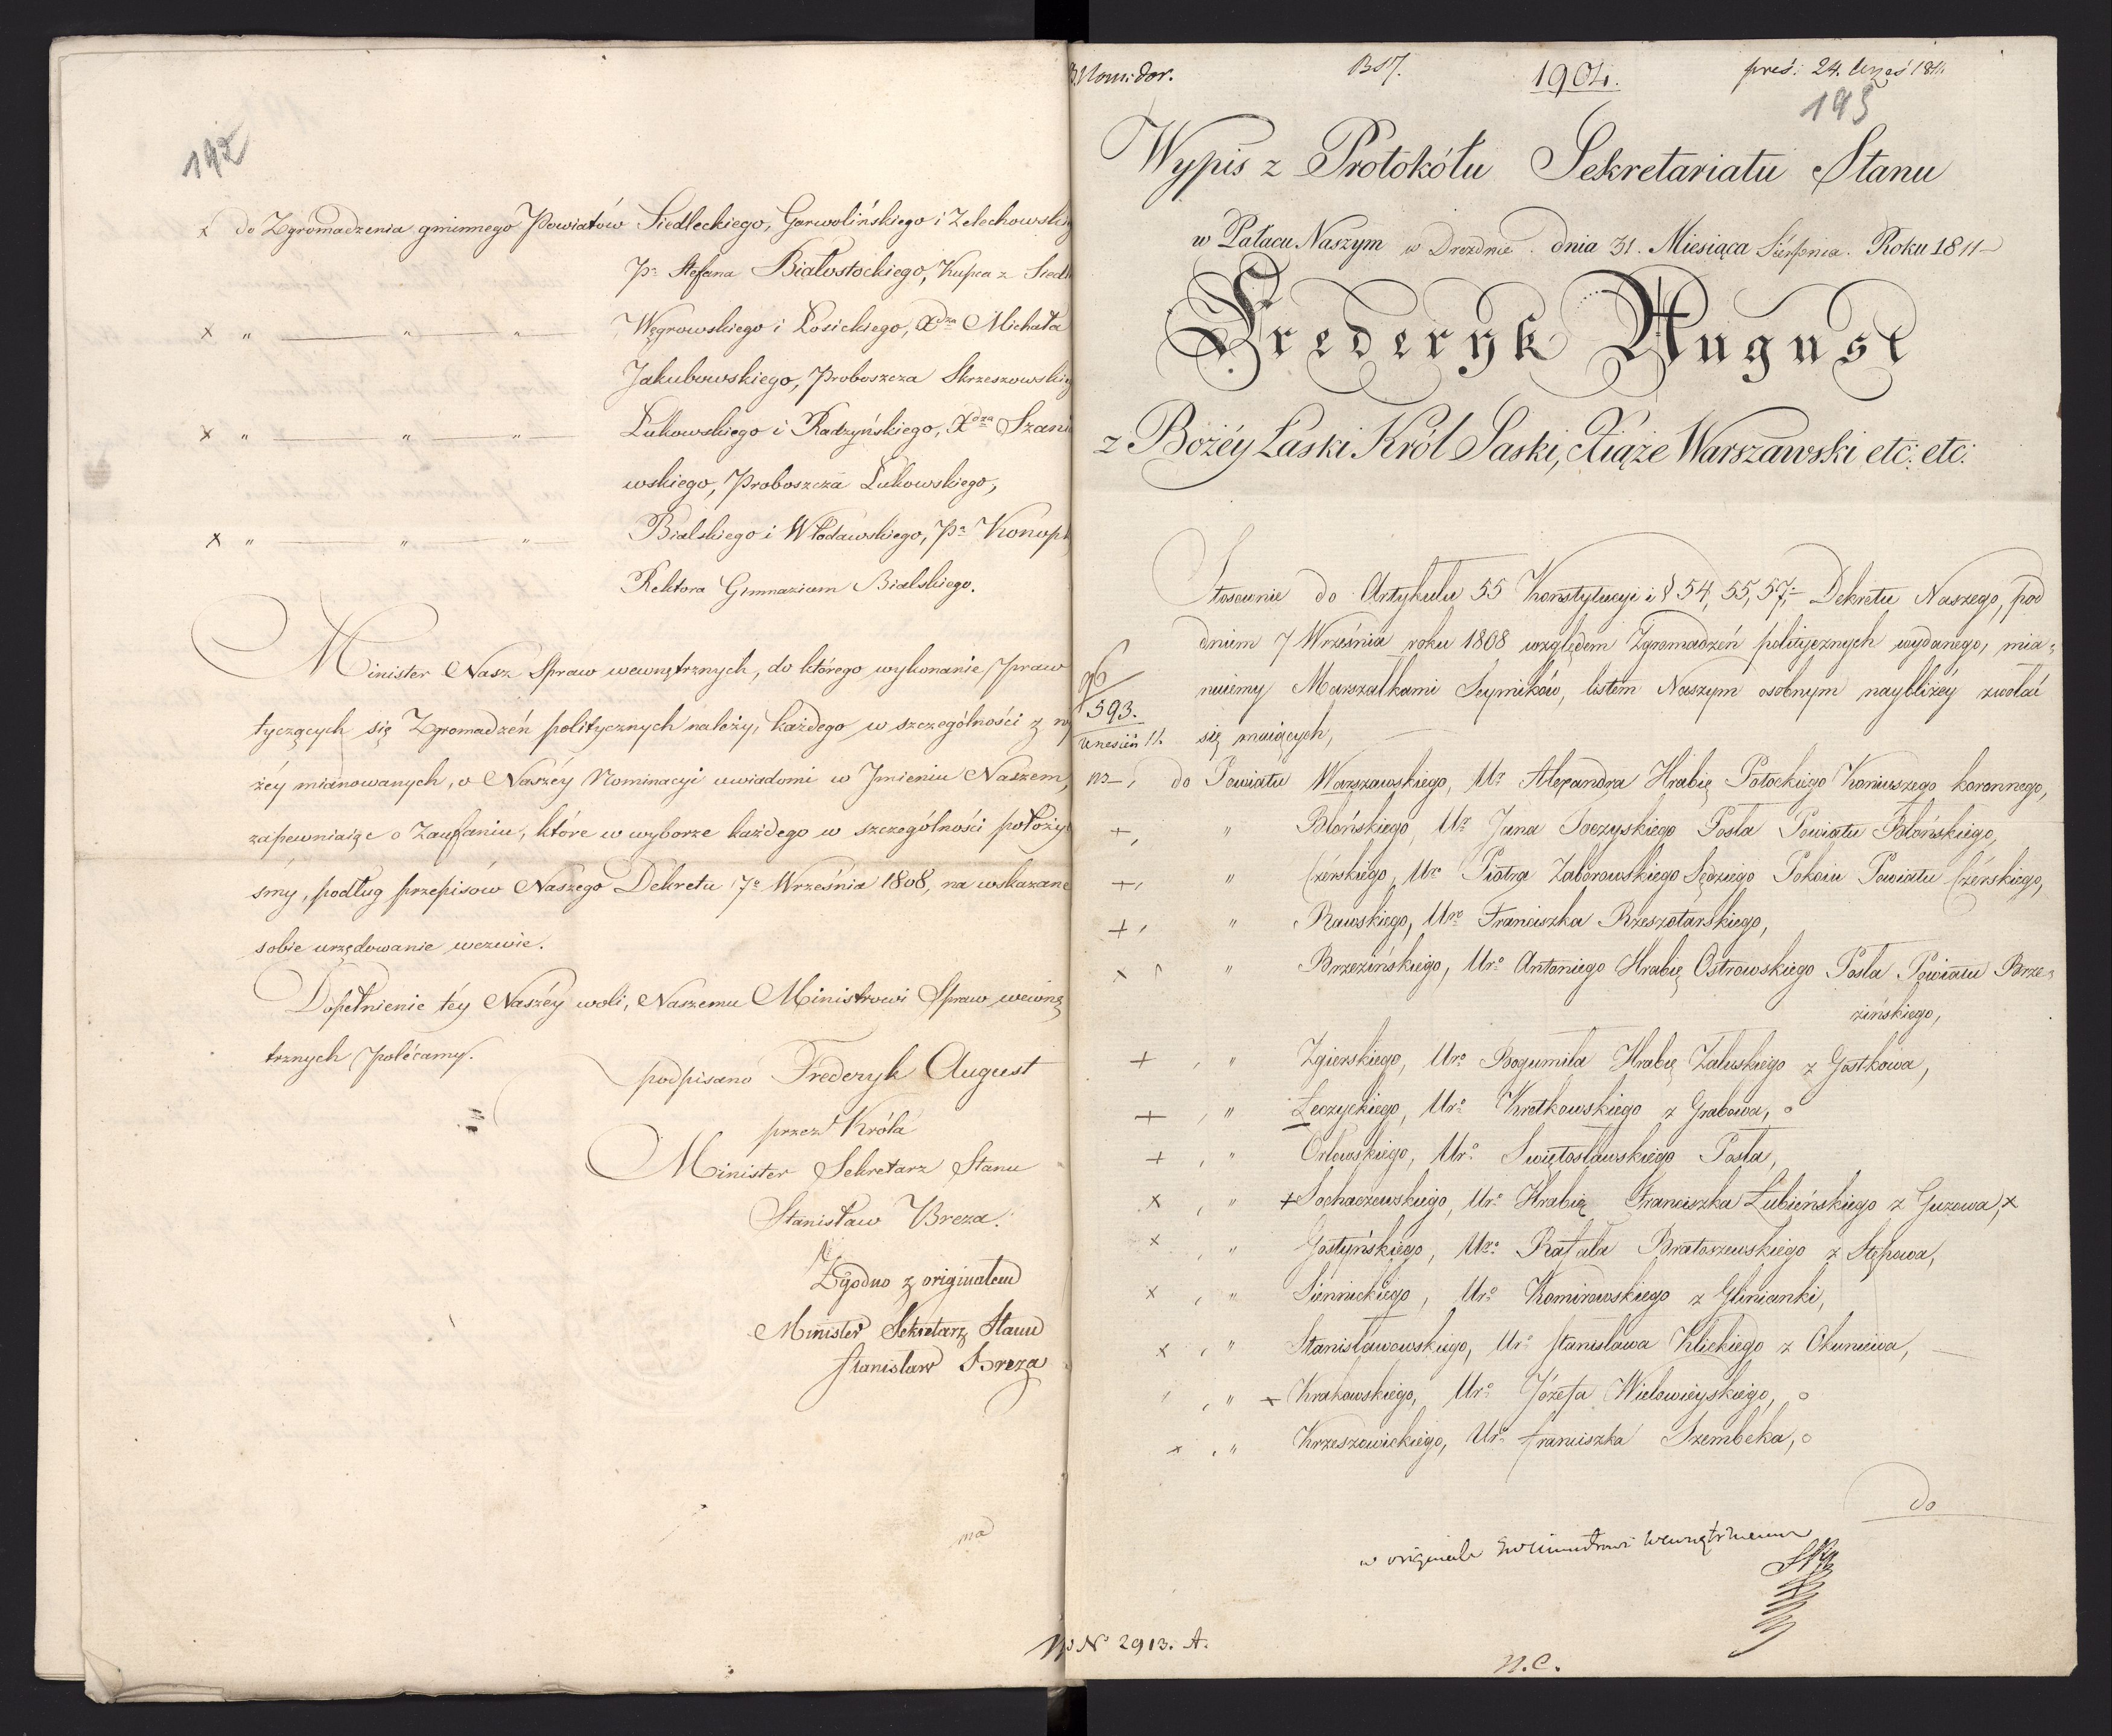 192
x do Zgromadzenia gminnego Powiatów Siedleckiego, Garwolińskiego i Zelechowskieg
Pa Stefana Białostockiego, Kupca z Siedl
x " " " Węgrowskiego i Łosickiego, Xdza Michała
Jakubowskiego, Proboszcza Skrzeszowskieg
x " " " Łukowskiego i Radzyńskiego, Xdza Szania
wskiego, Proboszcza Łukowskiego,
x " " " Bialskiego i Włodawskiego, Pa Konopk
Rektora Gimnazium Bialskiego.
Minister Nasz Spraw wewnętrznych, do którego wykonanie Spraw
tyczących się Zgromadzeń politycznych należy, każdego w szczególności z wy
żéy mianowanych, o Naszéy Nominacyi uwiadomi w Jmieniu Naszem,
zapewniaiąc o Zaufaniu, które w wyborze każdego w szczególności położyli
smy, podług przepisów Naszego Dekretu 7o Września 1808, na wskazane
sobie urzędowanie wezwie.
Dopełnienie téy Naszéy woli, Naszemu Ministrowi Spraw wewnę
trznych polécamy.
podpisano Frederyk August
przez Króla
Minister Sekretarz Stanu
Stanisław Breza.
Zgodno z originałem
Minister Sekretarz Stanu
Stanisław Breza
ma
1904.
pres: 24. Wrześ 1811
193
Wypis z Protokółu Sekretariatu Stanu
w Pałacu Naszym w Dreznie. dnia 31. Miesiąca Sierpnia. Roku 1811
Frederyk August
z Bożéy Łaski Król Saski, Xiąże Warszawski etc: etc:
Stosownie do Artykułu 55 Konstytucyi i § 54, 55, 57, Dekretu Naszego, pod
dniem 7 Września roku 1808 względem Zgromadzeń politycznych wydanego, mia-
nuiemy Marszałkami Seymików, listem Naszym osobnym naybliżéy zwołać
593.
Wrzesień 11. się maiących,
do Powiatu Warszawskiego, Uro Alexandra Hrabię Potockiego Koniuszego koronnego,
+, " Błońskiego, Uro Jana Soczyskiego Posła Powiatu Błońskiego,
+, " Czérskiego, Uro Piotra Zaborowskiego Sędziego Pokoiu Powiatu Czérskiego,
+, " Rawskiego, Uro Franciszka Rzeszotarskiego,
x, " Brzezińskiego, Uro Antoniego Hrabię Ostrowskiego Posła Powiatu Brze-
zińskiego,
+, " Zgierskiego, Uro Bogumiła Hrabię Załuskiego z Gostkowa,
+, " Łęczyckiego, Uro Kretkowskiego z Grabowa,
+, " Orłowskiego, Uro Swiętosławskiego Posła,
x, " + Sochaczewskiego, Uro Hrabię Franciszka Łubieńskiego z Guzowa, x
x, " Gostyńskiego, Uro Rafała Bratoszewskiego z Stępowa,
x, " Siennickiego, Uro Komirowskiego z Glinianki,
x, " Stanisławowskiego, Uro Stanisława Klickiego z Okuniewa,
, " x Krakowskiego, Uro Józefa Wielowieyskiego,
x, " Krzeszowickiego, Uro Franciszka Szembeka,
do
w originale
No 2913. A.
N.C.